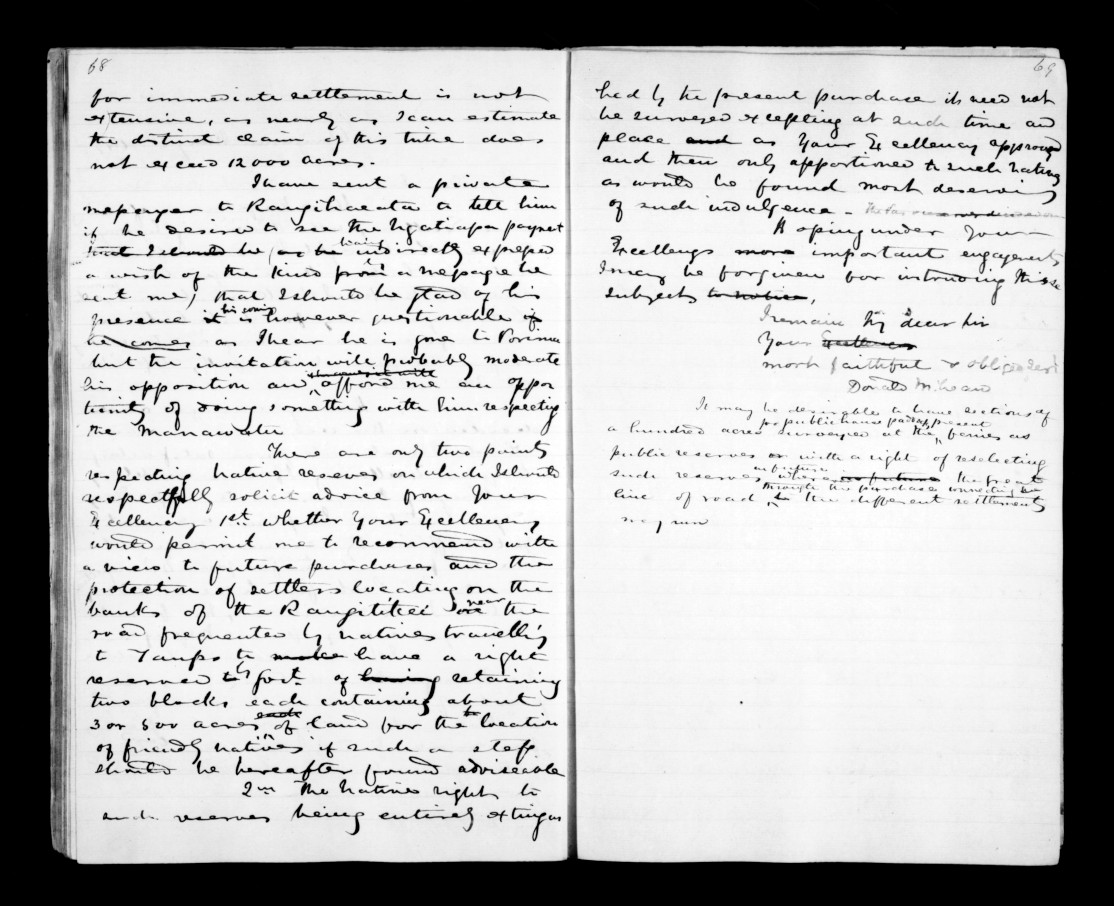 68
for immediate settlement is not
extensive, as nearly as I can estimate
the distinct claim of this tribe does
not exceed 12000 acres.
I have sent a private
messenger to Rangihaeata to tell him
if he desired to see the Ngatiapa payment
that I should be (as he indirectly expressed
having
a wish of the kind from a message he
sent me) that I should be glad of his
presence it is however questionable if
his coming
he comes as I hear he is gone to Porirua
but the invitation will probably moderate
his opposition and afford me an oppor
tunity of doing something with him respecting
the Manawatu
There are only two points
respecting native reserves on which I should
respectfully solicit advice from Your
Excellency 1st. Whether Your Excellency
would permit me to recommend with
a view to future purchases and the
protection of settlers locating on the
banks of the Rangitikei on the
near
road frequented by natives travelling
to Taupo to make have a right
reserved to Govt. of having retaining
two blocks each containing about
3 or 500 acres of land for the location
each
of friendly natives if such a step
should be hereafter found adviseable
2nd The Natives rights to
such reserves being entirely extinguis
69
hed by the present purchase it need not
be surveyed excepting at such time and
place and as Your Excellency approved
and then only apportioned to such natives
as would be found most deserving
of such indulgence.
Hoping under Your
Excellencys more important engagements
I may be forgiven for intruding these
subjects to notice,
I remain My dear Sir
Your Excellencys
most faithful & obliged Servt
Donald McLean
It may be desirable to have sections of
for public house present
a hundred acres surveyed at the ferries as
public reserves or with a right of reselecting
such reserves where in future the great
in future
through this purchase connecting
line of road to the different settlements
may run